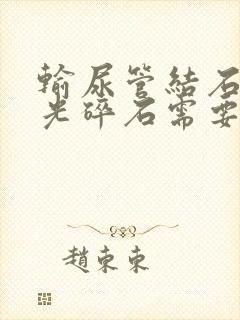 輸尿管結石
光碎石需要
趙東東